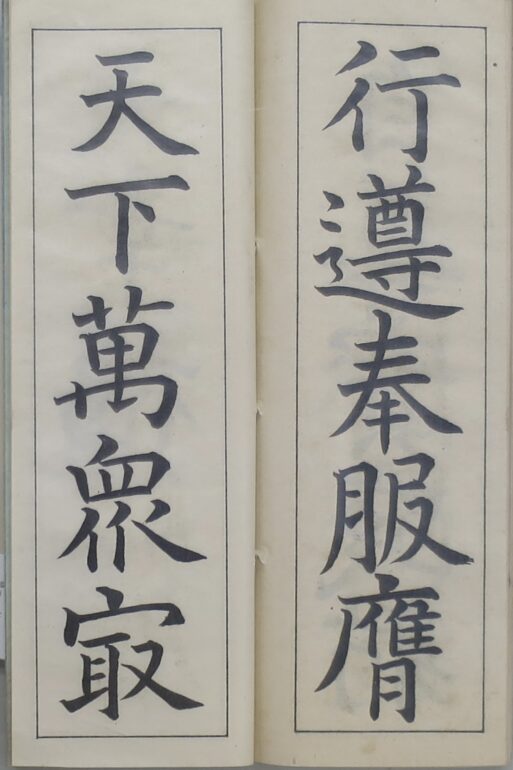 行遵奉服膺
天下萬衆㝡